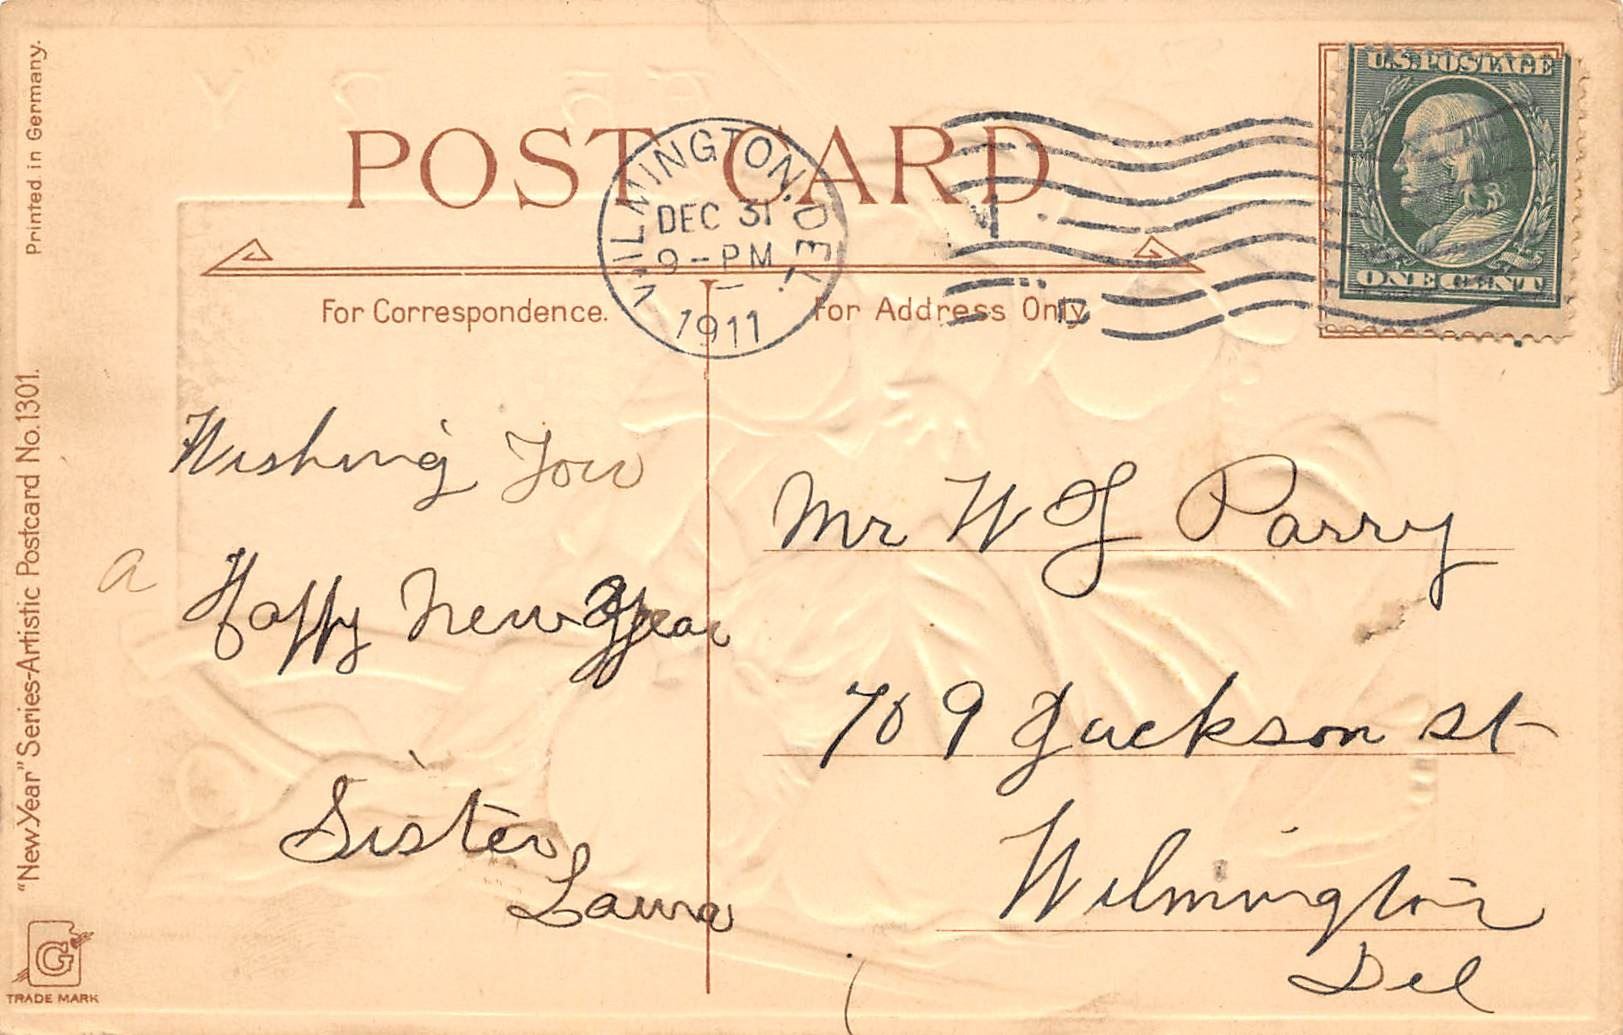 Printed in Germany.
"New Year" Series-Artistic Postcard No. 1301.
G
TRADE MARK
POST CARD
U.S. POSTAGE
ONE CENT
WILMINGTON, DEL.
DEC 31
9-PM
1911
For Correspondence.
For Address Only
Wishing You
a Happy New Year
Sister
Laura
Mr W J Parry
709 Jackson st
Wilmington
Del